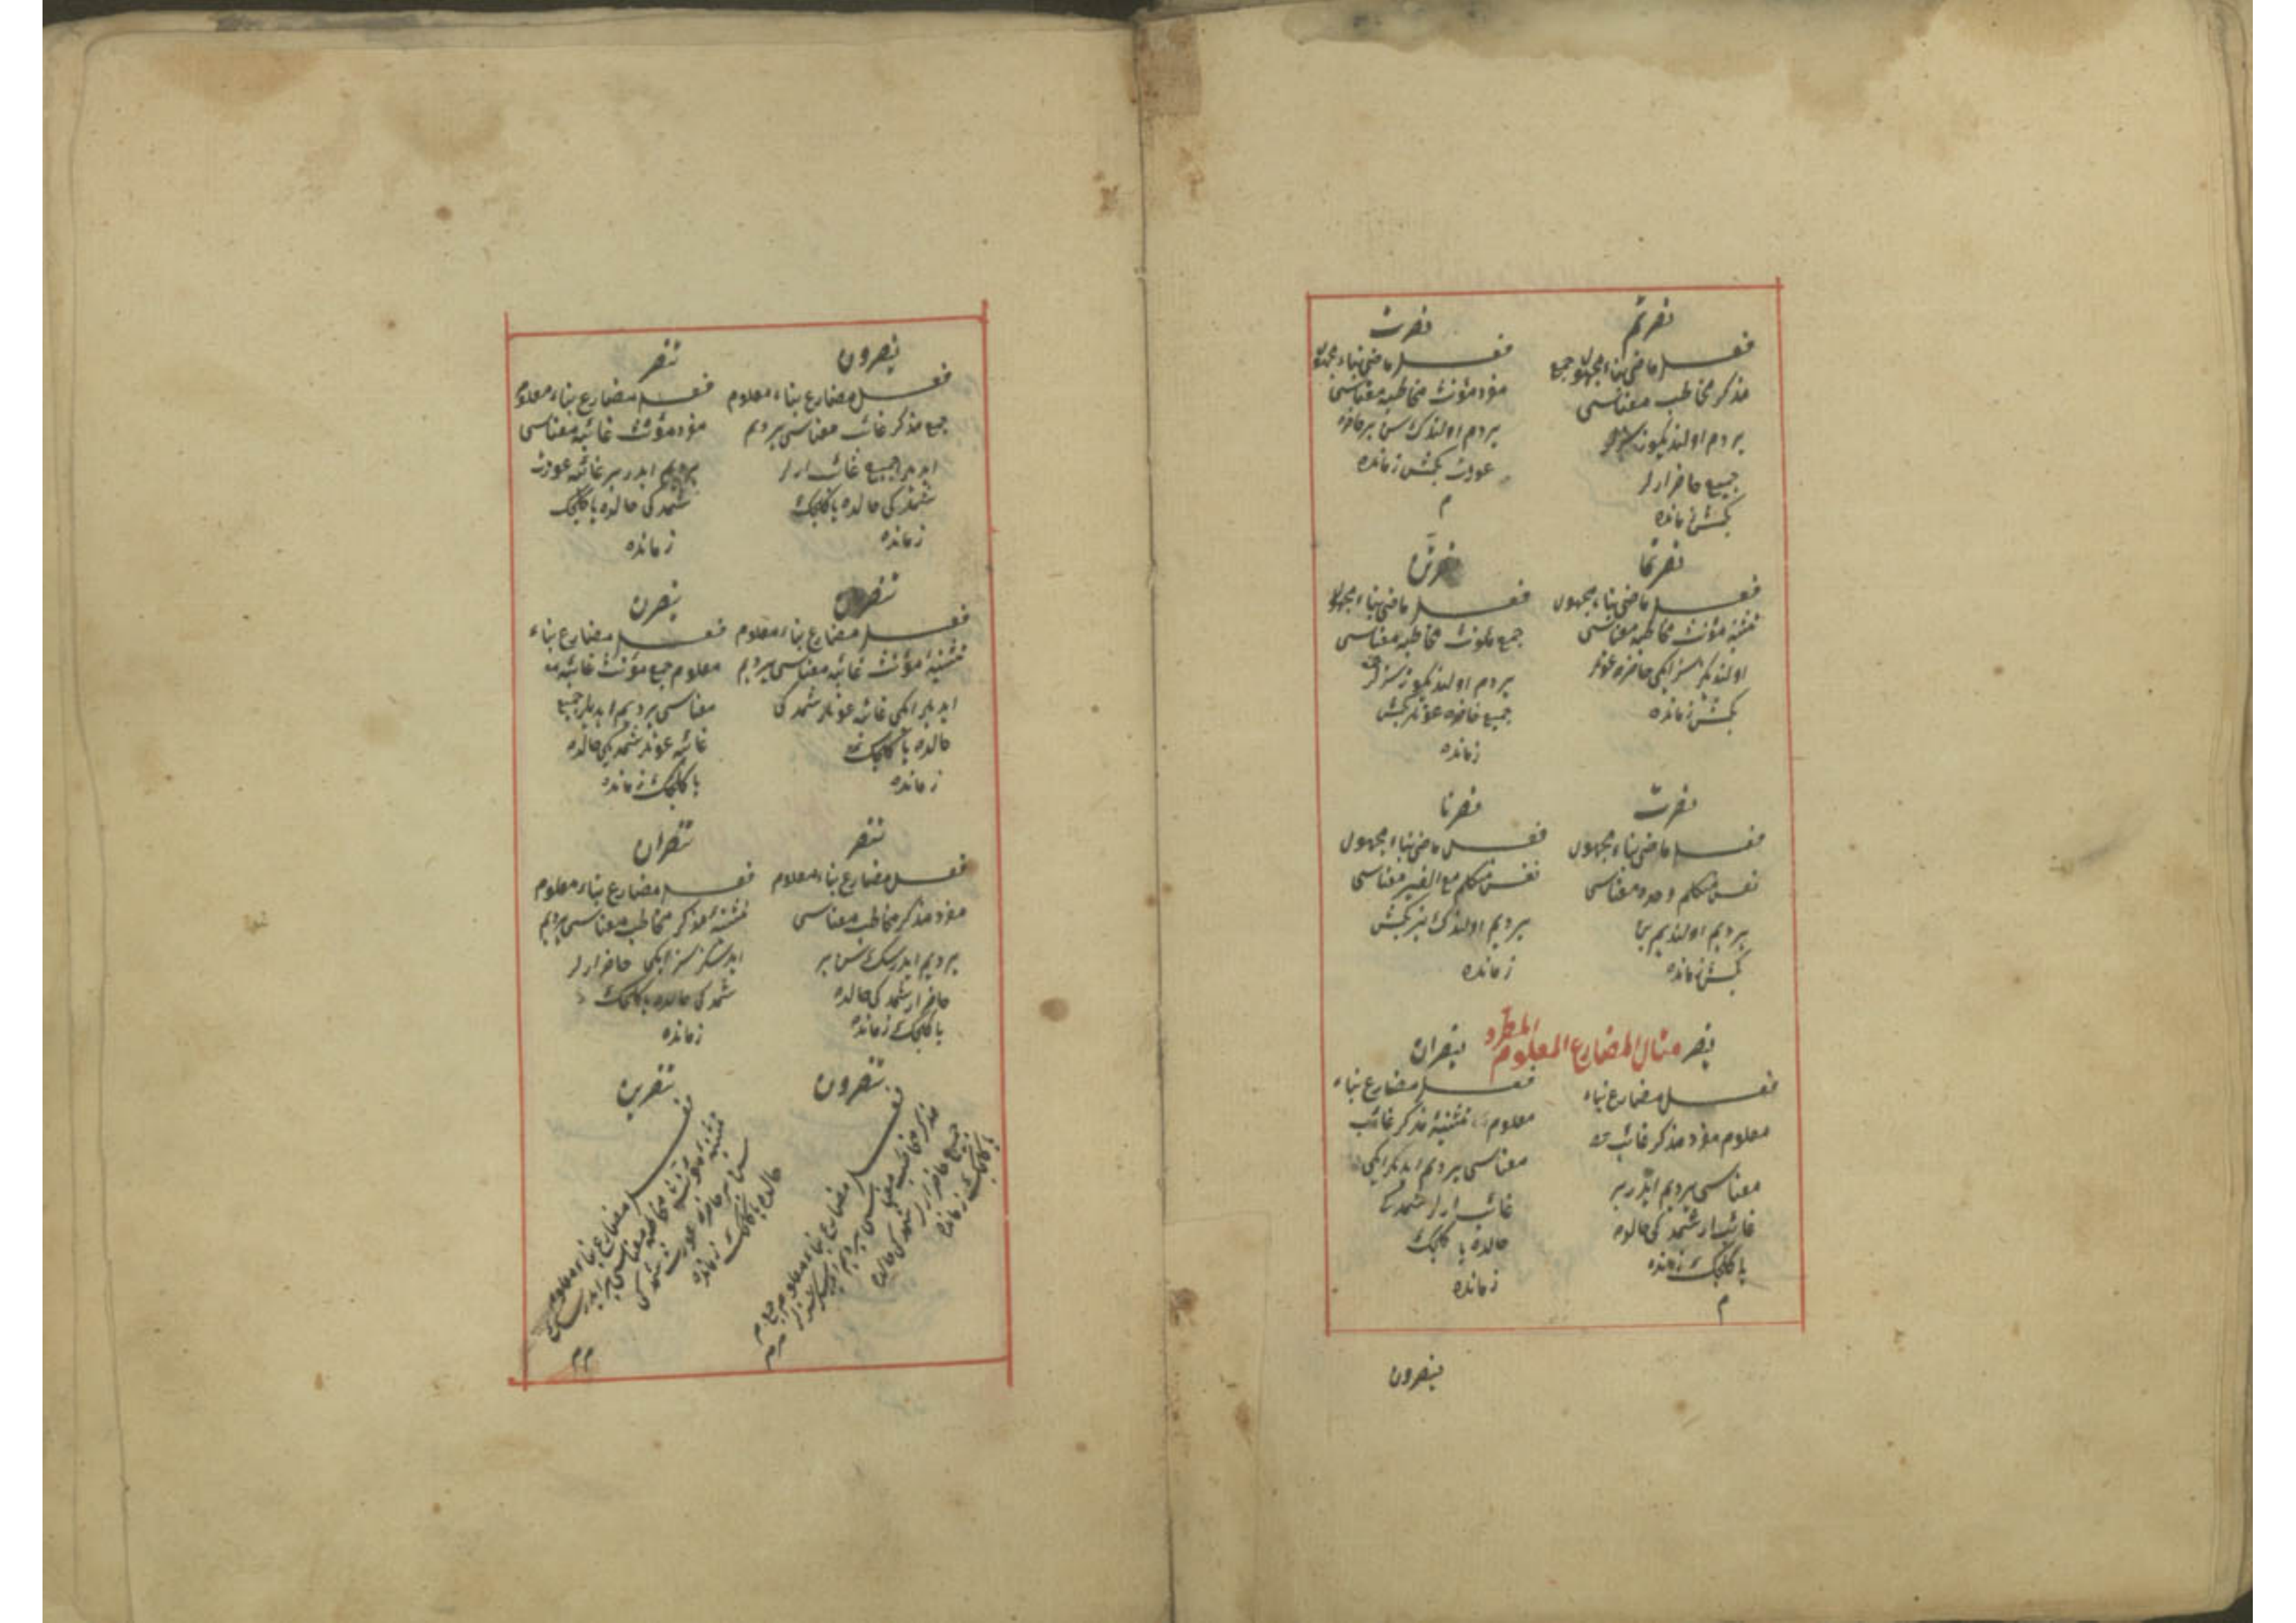 نصرتم
فعل ماضى بناء مجهول جمع
مذكر مخاطب معناسى
يردم اولنديكوز سزلر
جميع حاضر ارلر
كچمش زمانده
نصرت
فعل ماضى بناء مجهول
مفرد مؤنث مخاطبه معناسى
يردم اولندك سن بر حاضره
عورت كچمش زمانده
م
نصرتما
فعل ماضى بناء مجهول
تثنيه مؤنث مخاطبه معناسى
اولنديكز سز ايكى حاضره عورتلر
كچمش زمانده
نصرتن
فعل ماضى بناء مجهول
جمع مؤنث مخاطبه معناسى
يردم اولنديكوز سزلر
جميع حاضره عورتلر كچمش
زمانده
نصرت
فعل ماضى بناء مجهول
نفس متكلم وحده معناسى
يرديم اولنديم بن
كچمش زمانده
نصرنا
فعل ماضى بناء مجهول
نفس متكلم مع الغير معناسى
يرديم اولندك بز كچمش
زمانده
مثال المضارع المعلوم المطرد
ينصر
فعل مضارع بناء
معلوم مفرد مذكر غائب
معناسى يرديم ايدر بر
غائب ار شمدكى حالده
يا كلجك زمانده
م
ينصران
فعل مضارع بناء
معلوم تثنيه مذكر غائب
معناسى يرديم ايدرلر ايكى
غائب ارلر شمدكى
حالده يا كلجك
زمانده
ينصرون
ينصرون
فعل مضارع بناء معلوم
جمع مذكر غائب معناسى يرديم
ايديلر جميع غائب ارلر
شمدكى حالده يا كلجك
زمانده
تنصر
فعل مضارع بناء معلوم
مفرد مؤنث غائبه معناسى
يرديم ايدر بر غائبه عورت
شمدكى حالده يا كلجك
زمانده
تنصران
فعل مضارع بناء معلوم
تثنيه مؤنث غائبه معناسى يرديم
ايديلر ايكى غائبه عورتلر شمدكى
حالده يا كلجك
زمانده
ينصرن
فعل مضارع بناء
معلوم جمع مؤنث غائبه
معناسى يرديم ايديلر جميع
غائبه عورتلر شمديكى حالده
يا كلجك زمانده
تنصر
فعل مضارع بناء معلوم
مفرد مذكر مخاطب معناسى
يرديم ايدرسك سن بر
حاضر ار شمدكى حالده
يا كلجك زمانده
تنصران
فعل مضارع بناء معلوم
تثنيه مذكر مخاطب معناسى يرديم
ايدرسكز سز ايكى حاضر ارلر
شمدكى حالده يا كلجك
زمانده
تنصرون
فعل مضارع بناء معلوم جمع
مذكر مخاطب معناسى يرديم
جميع حاضر ارلر شمدكى حالده
يا كلجك زمانده
تنصرين
فعل مضارع بناء معلوم
مؤنث مخاطبه معناسى
سن بر حاضره عورت شمدكى
حالده يا كلجك زمانده
م م